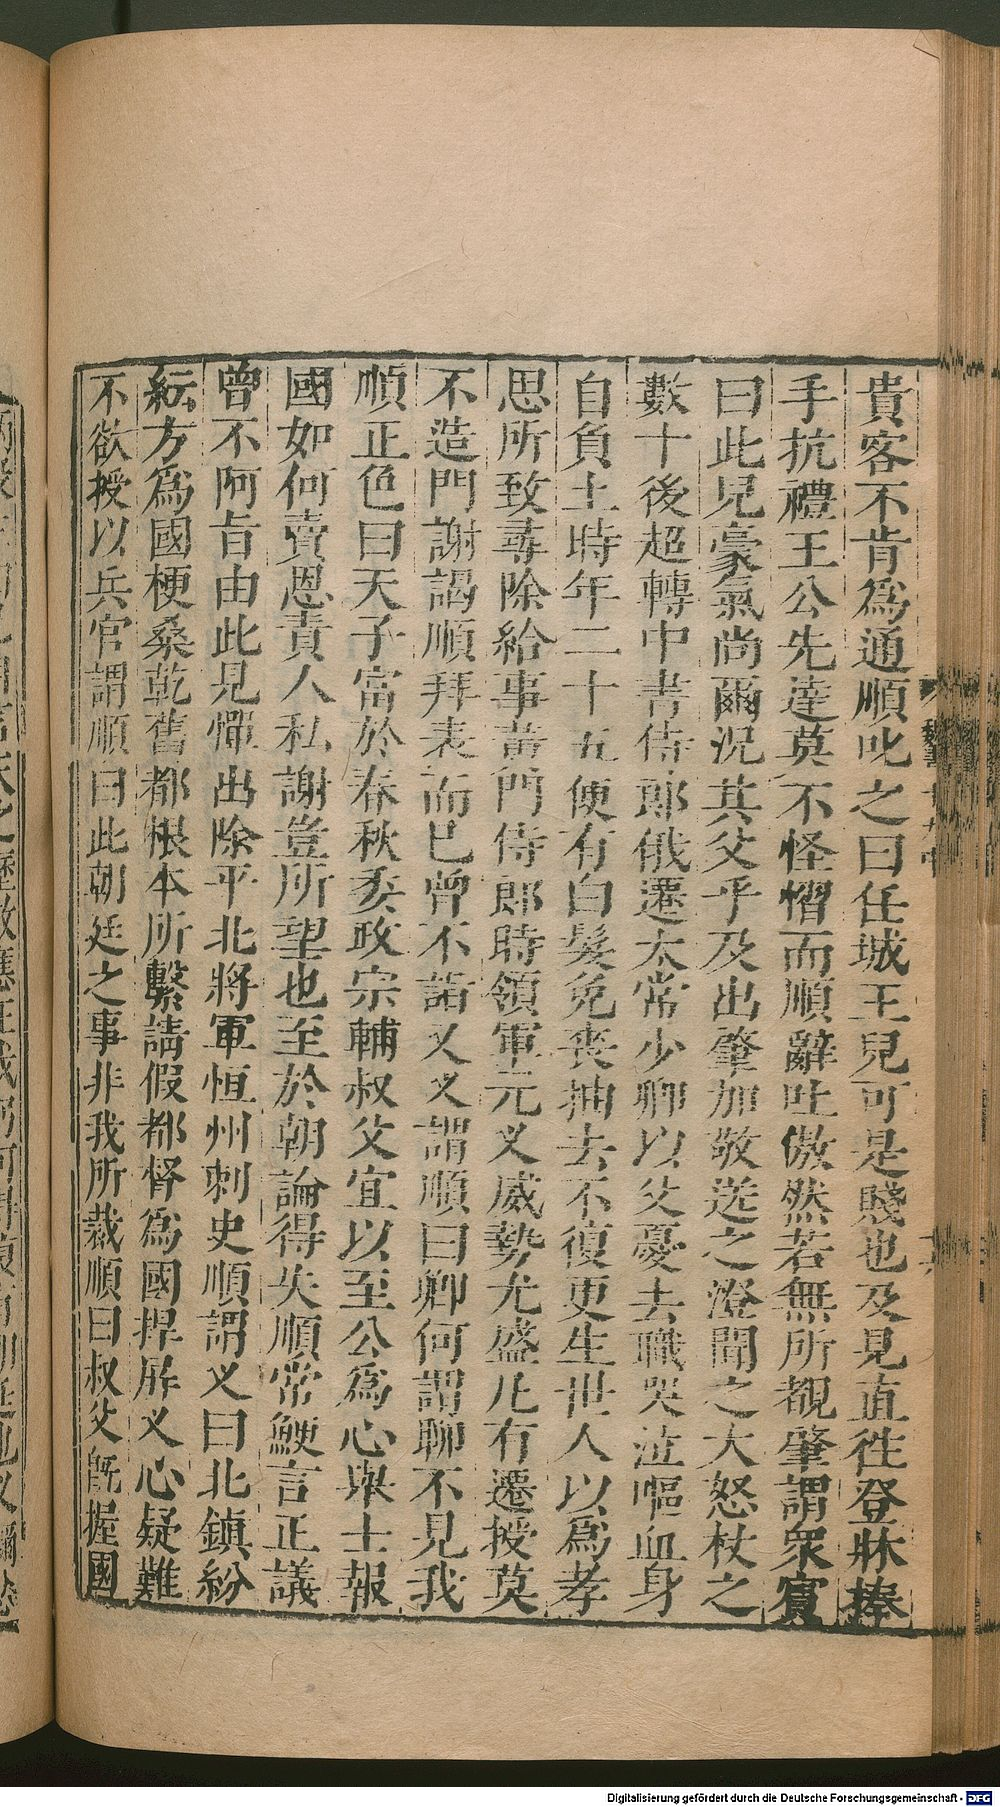 貴客不肯爲通順叱之曰任城王兒可是賤也及見直徃登牀捧
手抗禮王公先達莫不怪慴而順辭吐傲然若無所覩肇謂衆賓
曰此兒豪氣尚爾況其父乎及出肇加敬送之澄聞之大怒杖之
數十後超轉中書侍郎俄遷太常少卿以父憂去職哭泣嘔血身
自負土時年二十五便有白髮免喪抽去不復更生世人以爲孝
思所致尋除給事黃門侍郎時領軍元乂威勢尤盛凡有遷授莫
不造門謝謁順拜表而已曾不詣乂乂謂順曰卿何謂聊不見我
順正色曰天子富於春秋委政宗輔叔父宜以至公爲心舉士報
國如何賣恩責人私謝豈所望也至於朝論得失順常鯁言正議
曾不阿旨由此見憚出除平北將軍恒州刺史順謂乂曰北鎮紛
紜方爲國梗桑乾舊都根本所繫請假都督爲國捍屏乂心疑難
不欲授以兵官謂順曰此朝廷之事非我所裁順曰叔父旣握國
Digitalisierung gefördert durch die Deutsche Forschungsgemeinschaft - DFG